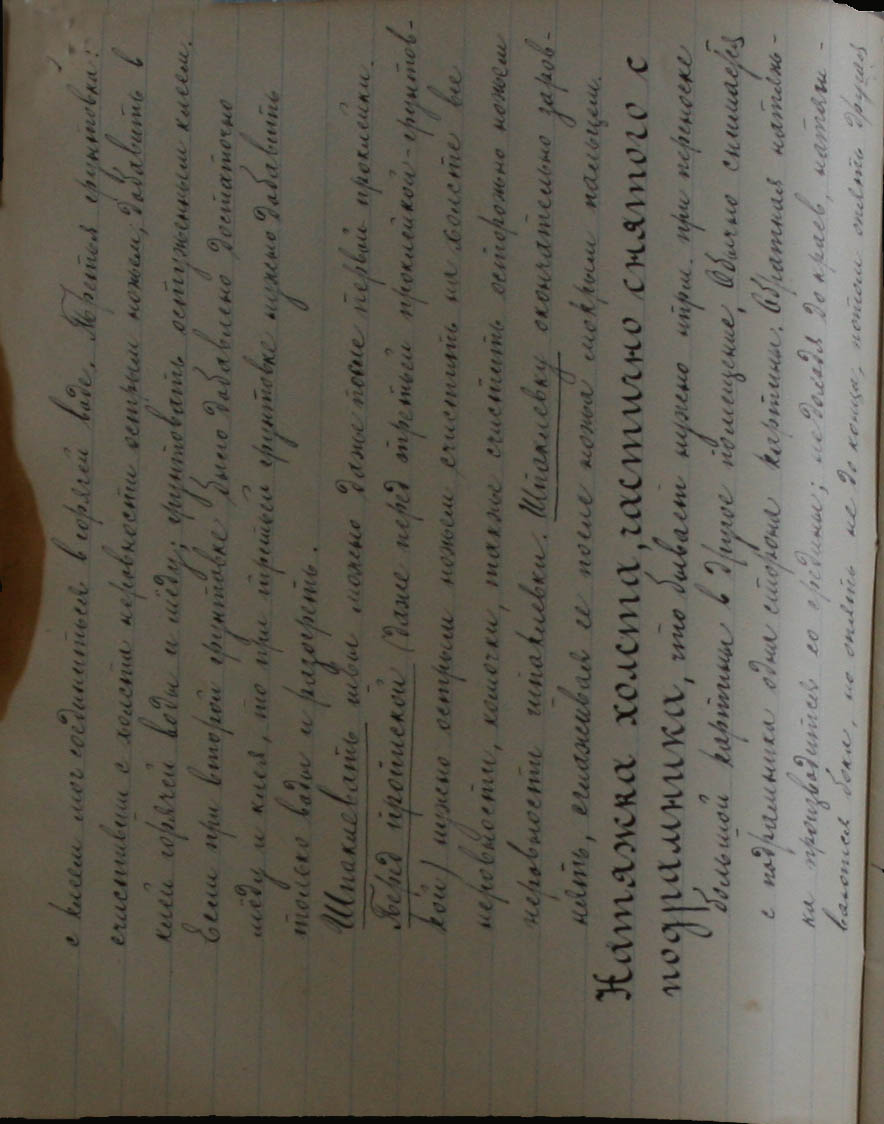 с клеем мог соединиться в горячей воде. Третья грунтовка:
счистивши с холста неровности острым ножом, добавить в
клей горячей воды и мёду; грунтовать остуженным клеем.
Если при второй грунтовке было добавлено достаточно
мёду и клея, то при третьей грунтовке нужно добавить
только воды и разогреть.
Шпаклевать швы можно даже после первой проклейки.
Перед пропиской (даже перед третьей проклейкой-грунтов-
кой) нужно острым ножом счистить на холсте все
неровности, комочки, также счистить осторожно ножом
неровности шпаклевки. Шпаклевку окончательно заров-
нять, сглаживая ее после ножа мокрым пальцем.
Натяжка холста, частично снятого с
подрамника, что бывает нужно напри. при переноске
большой картины в другое помещение, Обычно снимается
с подрамника одна сторона картины. Обратная натяж-
ка производится со средины; не доходя до краев, натяги-
ваются бока, но опять не до конца, потом опять другая